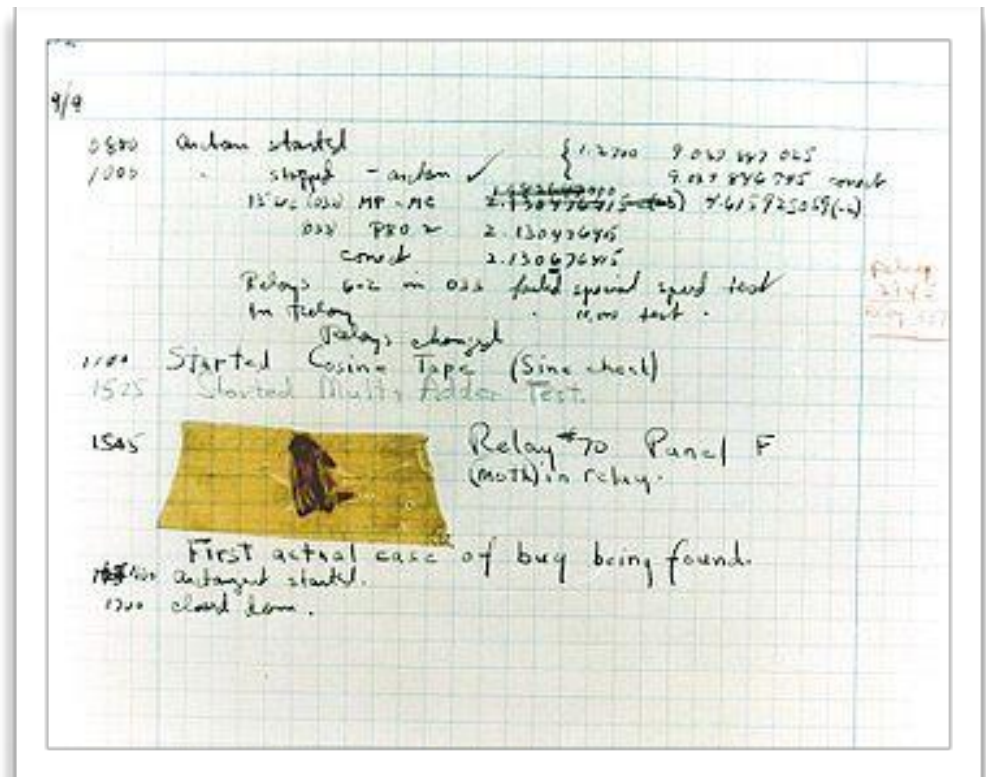 9/9
0800 antan started { 1.2700 9.037 847 025
1000 " stopped - antan ✓ 9.037 846 795 correct
13"uc (033) MP - MC 2.130476415 (-3) 4.615925059(-2)
033 PRO 2 2.130476415
correct 2.130676415
Relays 6-2 in 033 failed special speed test
In Relay " 11,000 test .
Relays changed
1100 Started Cosine Tape (Sine check)
1525 Started Mult + Adder Test.
1545 Relay #70 Panel F
(Moth) in relay.
First actual case of bug being found.
1630 antangent started.
1700 closed down .
Relay
2145
Relay 337